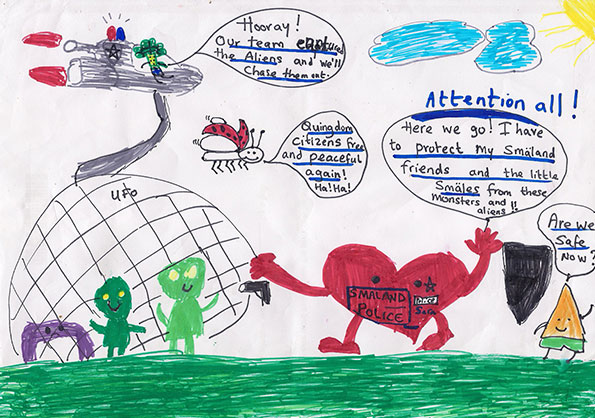 Hooray!
Our team captured
the Aliens and we'll
chase them out.
Attention all!
Here we go! I have
to protect my Småland
friends and the little
Småles from these
monsters and
aliens!!
Quingdom
Citizens free
and peaceful
again!
Ha!Ha!
UFO
Are we
Safe
Now?
SMALAND
POLICE